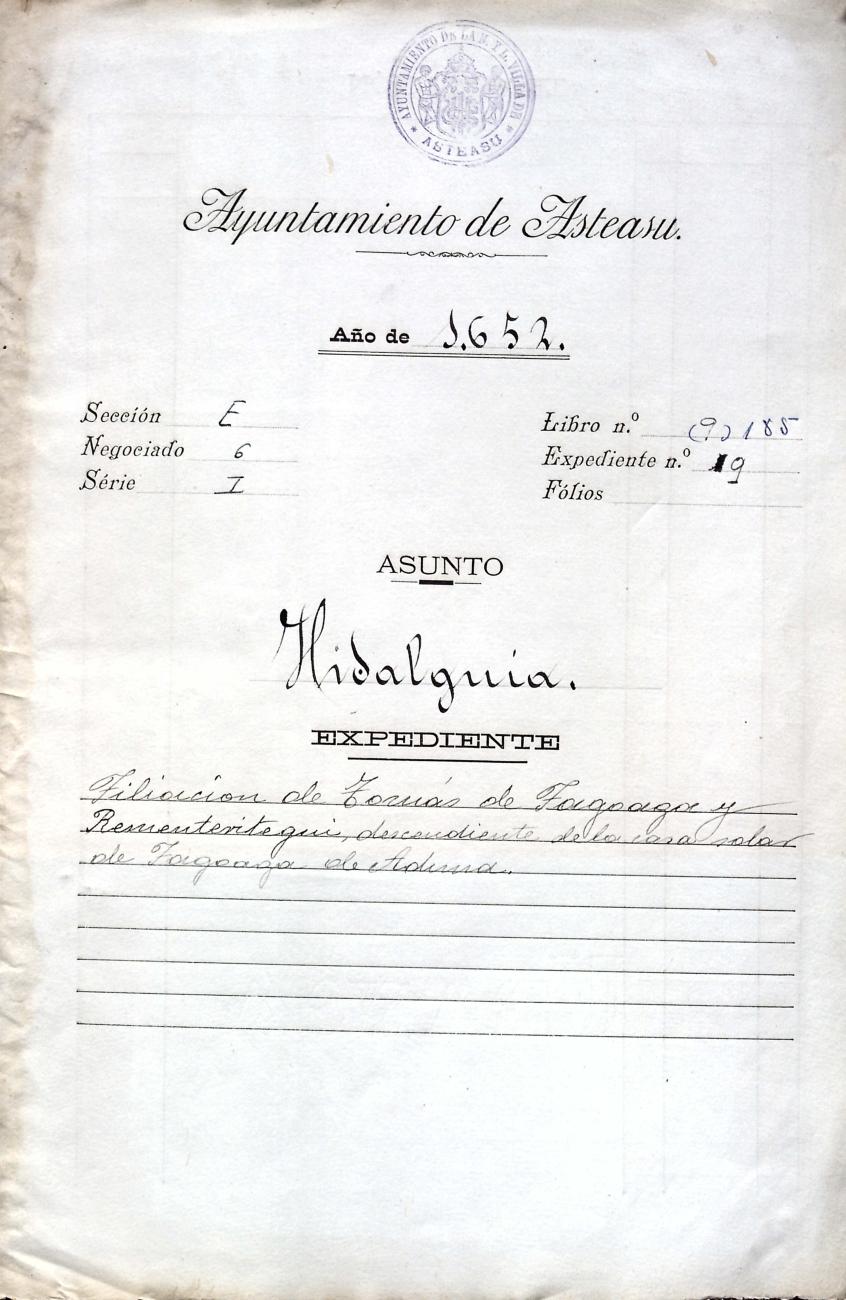 AYUNTAMIENTO DE LA N. Y L. VILLA DE
* ASTEASU *
Ayuntamiento de Asteasu.
Año de 1.652.
Sección E
Negociado 6
Série I
Libro n.º (9) 185
Expediente n.º 19
Fólios
ASUNTO
Hidalguia.
EXPEDIENTE
Filiacion de Tomás de Fagoaga y
Rementeritegui, descendiente de la casa solar
de Fagoaga de Aduna.